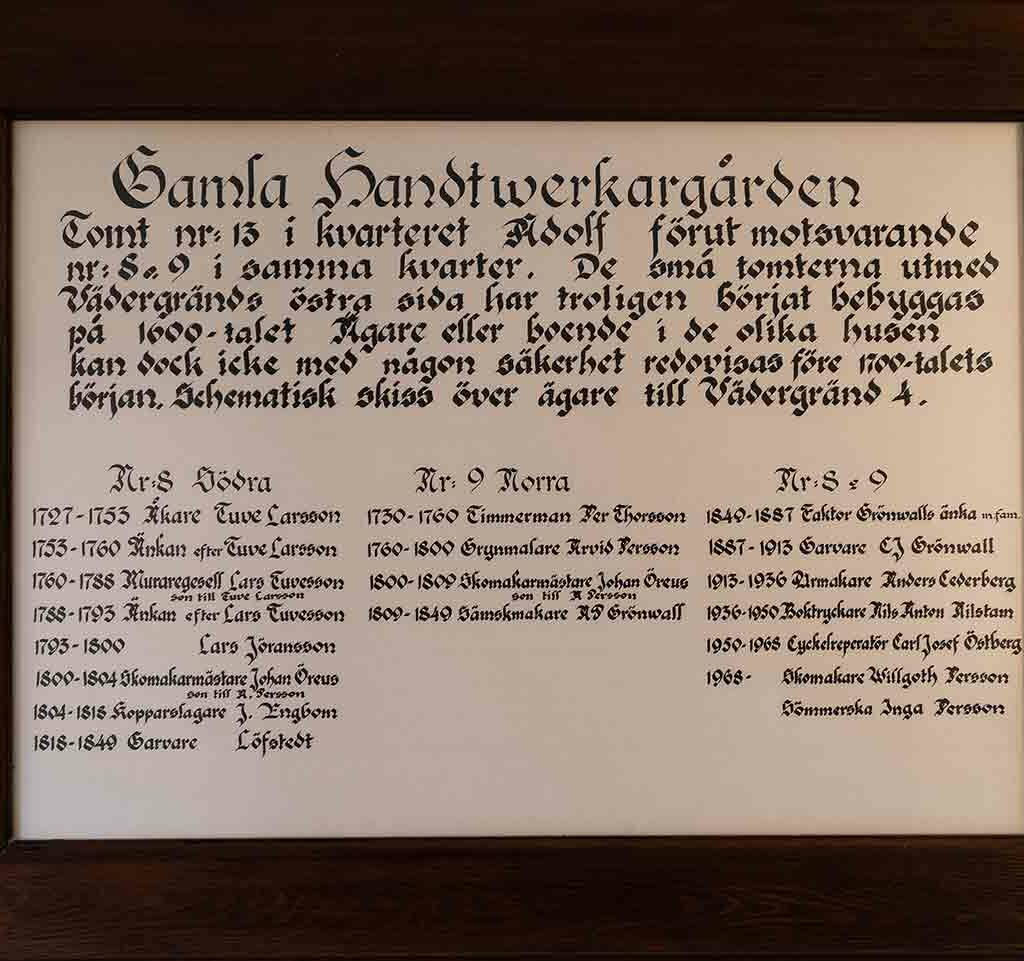 Gamla Handtwerkargården
Tomt nr: 13 i kvarteret Adolf förut motsvarande
nr: 8 o. 9 i samma kvarter. De små tomterna utmed
Vädergränds östra sida har troligen börjat bebyggas
på 1600-talet Ägare eller boende i de olika husen
kan dock icke med någon säkerhet redovisas före 1700-talets
början. Schematisk skiss över ägare till Vädergränd 4.
Nr: 8 Södra
1727-1753 Åkare Tuve Larsson
1753-1760 Änkan efter Tuve Larsson
1760-1788 Muraregesell Lars Tuvesson
son till Tuve Larsson
1788-1793 Änkan efter Lars Tuvesson
1793-1800 Lars Jöransson
1800-1804 Skomakarmästare Johan Öreus
son till A. Persson
1804-1818 Kopparslagare J. Engbom
1818-1849 Garvare Löfstedt
Nr: 9 Norra
1730-1760 Timmerman Per Thorsson
1760-1800 Grynmalare Arvid Persson
1800-1809 Skomakarmästare Johan Öreus
son till A Persson
1809-1849 Sämskmakare AP Grönwall
Nr: 8 o 9
1849-1887 Faktor Grönwalls änka m.fam.
1887-1913 Garvare CJ Grönwall
1913-1936 Urmakare Anders Cederberg
1936-1950 Boktryckare Nils Anton Nilstam
1950-1968 Cyckelreperatör Carl Josef Östberg
1968- Skomakare Willgoth Persson
Sömmerska Inga Persson